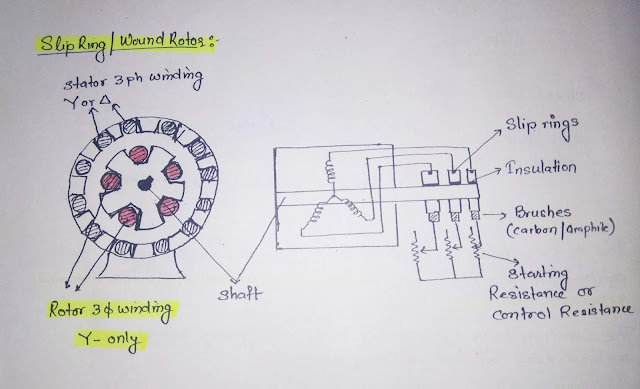 Slip Ring / Wound Rotor:-
Stator 3ph winding
Y or Δ
Slip rings
Insulation
Brushes
(carbon/Graphite)
Starting
Resistance or
Control Resistance
Shaft
Rotor 3ϕ winding
Y- only